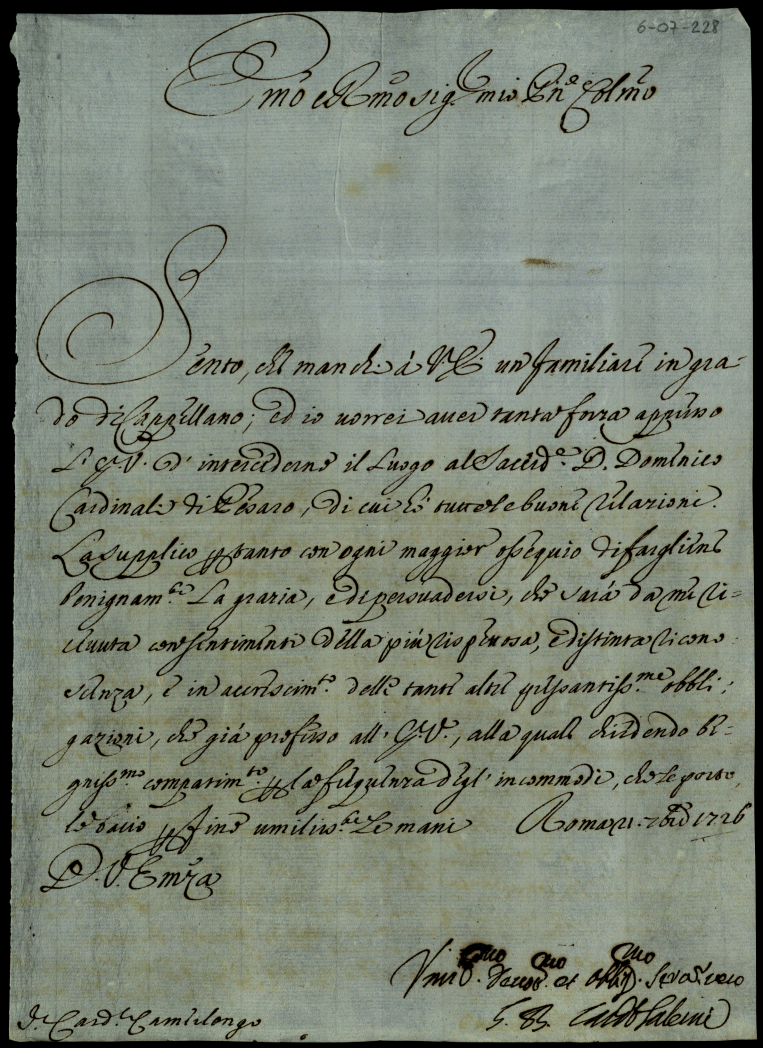 6-07-228
Emõ e Rmõ Sig.r mio Pñe Colmõ
Sento, che manchi à V.E. un familiare in gra-
do di Cappellano; ed io vorrei aver tanta forza appresso
L'E.V. d'intercederne il luogo al Sacerd.e D. Domenico
Cardinali di Pesaro, di cui hò tutte le buone relazioni.
La supplico per tanto con ogni maggior ossequio di fargliene
benignam.te la grazia, e di persuadersi, che sarà da me ri-
cevuta con sentimenti della più rispettosa, e distinta ricono-
scenza, e in accrescim.to delle tante altre pressantiss.me obbli-
gazioni, che già professo all'E.V., alla quale chiedendo be-
gniss.mo compatim.to per la frequenza degl'incommodi, che le porto,
le bacio per fine umiliss.te le mani Roma 21. 7bre 1726
D. V. Emza
Umil.mo Devot.mo et Obblig.mo Serv.re vero
Card.
S.r Card.l Camtelongo